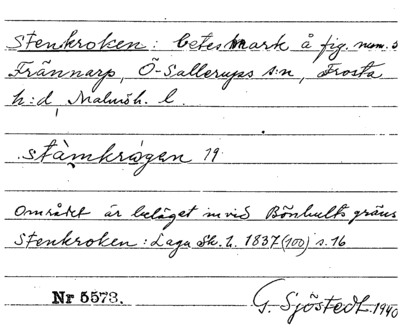 Stenkroken: betesmark å fig. num. 3
Frännarp, Ö-Sallerups s:n, Frosta
h:d, Malmöh. l.
stàmkrógen 19
Området är beläget invid Bönhults gräns
Stenkroken: Laga Sk. h. 1837 (100) s. 16
Nr 5573.
G. Sjöstedt 1940